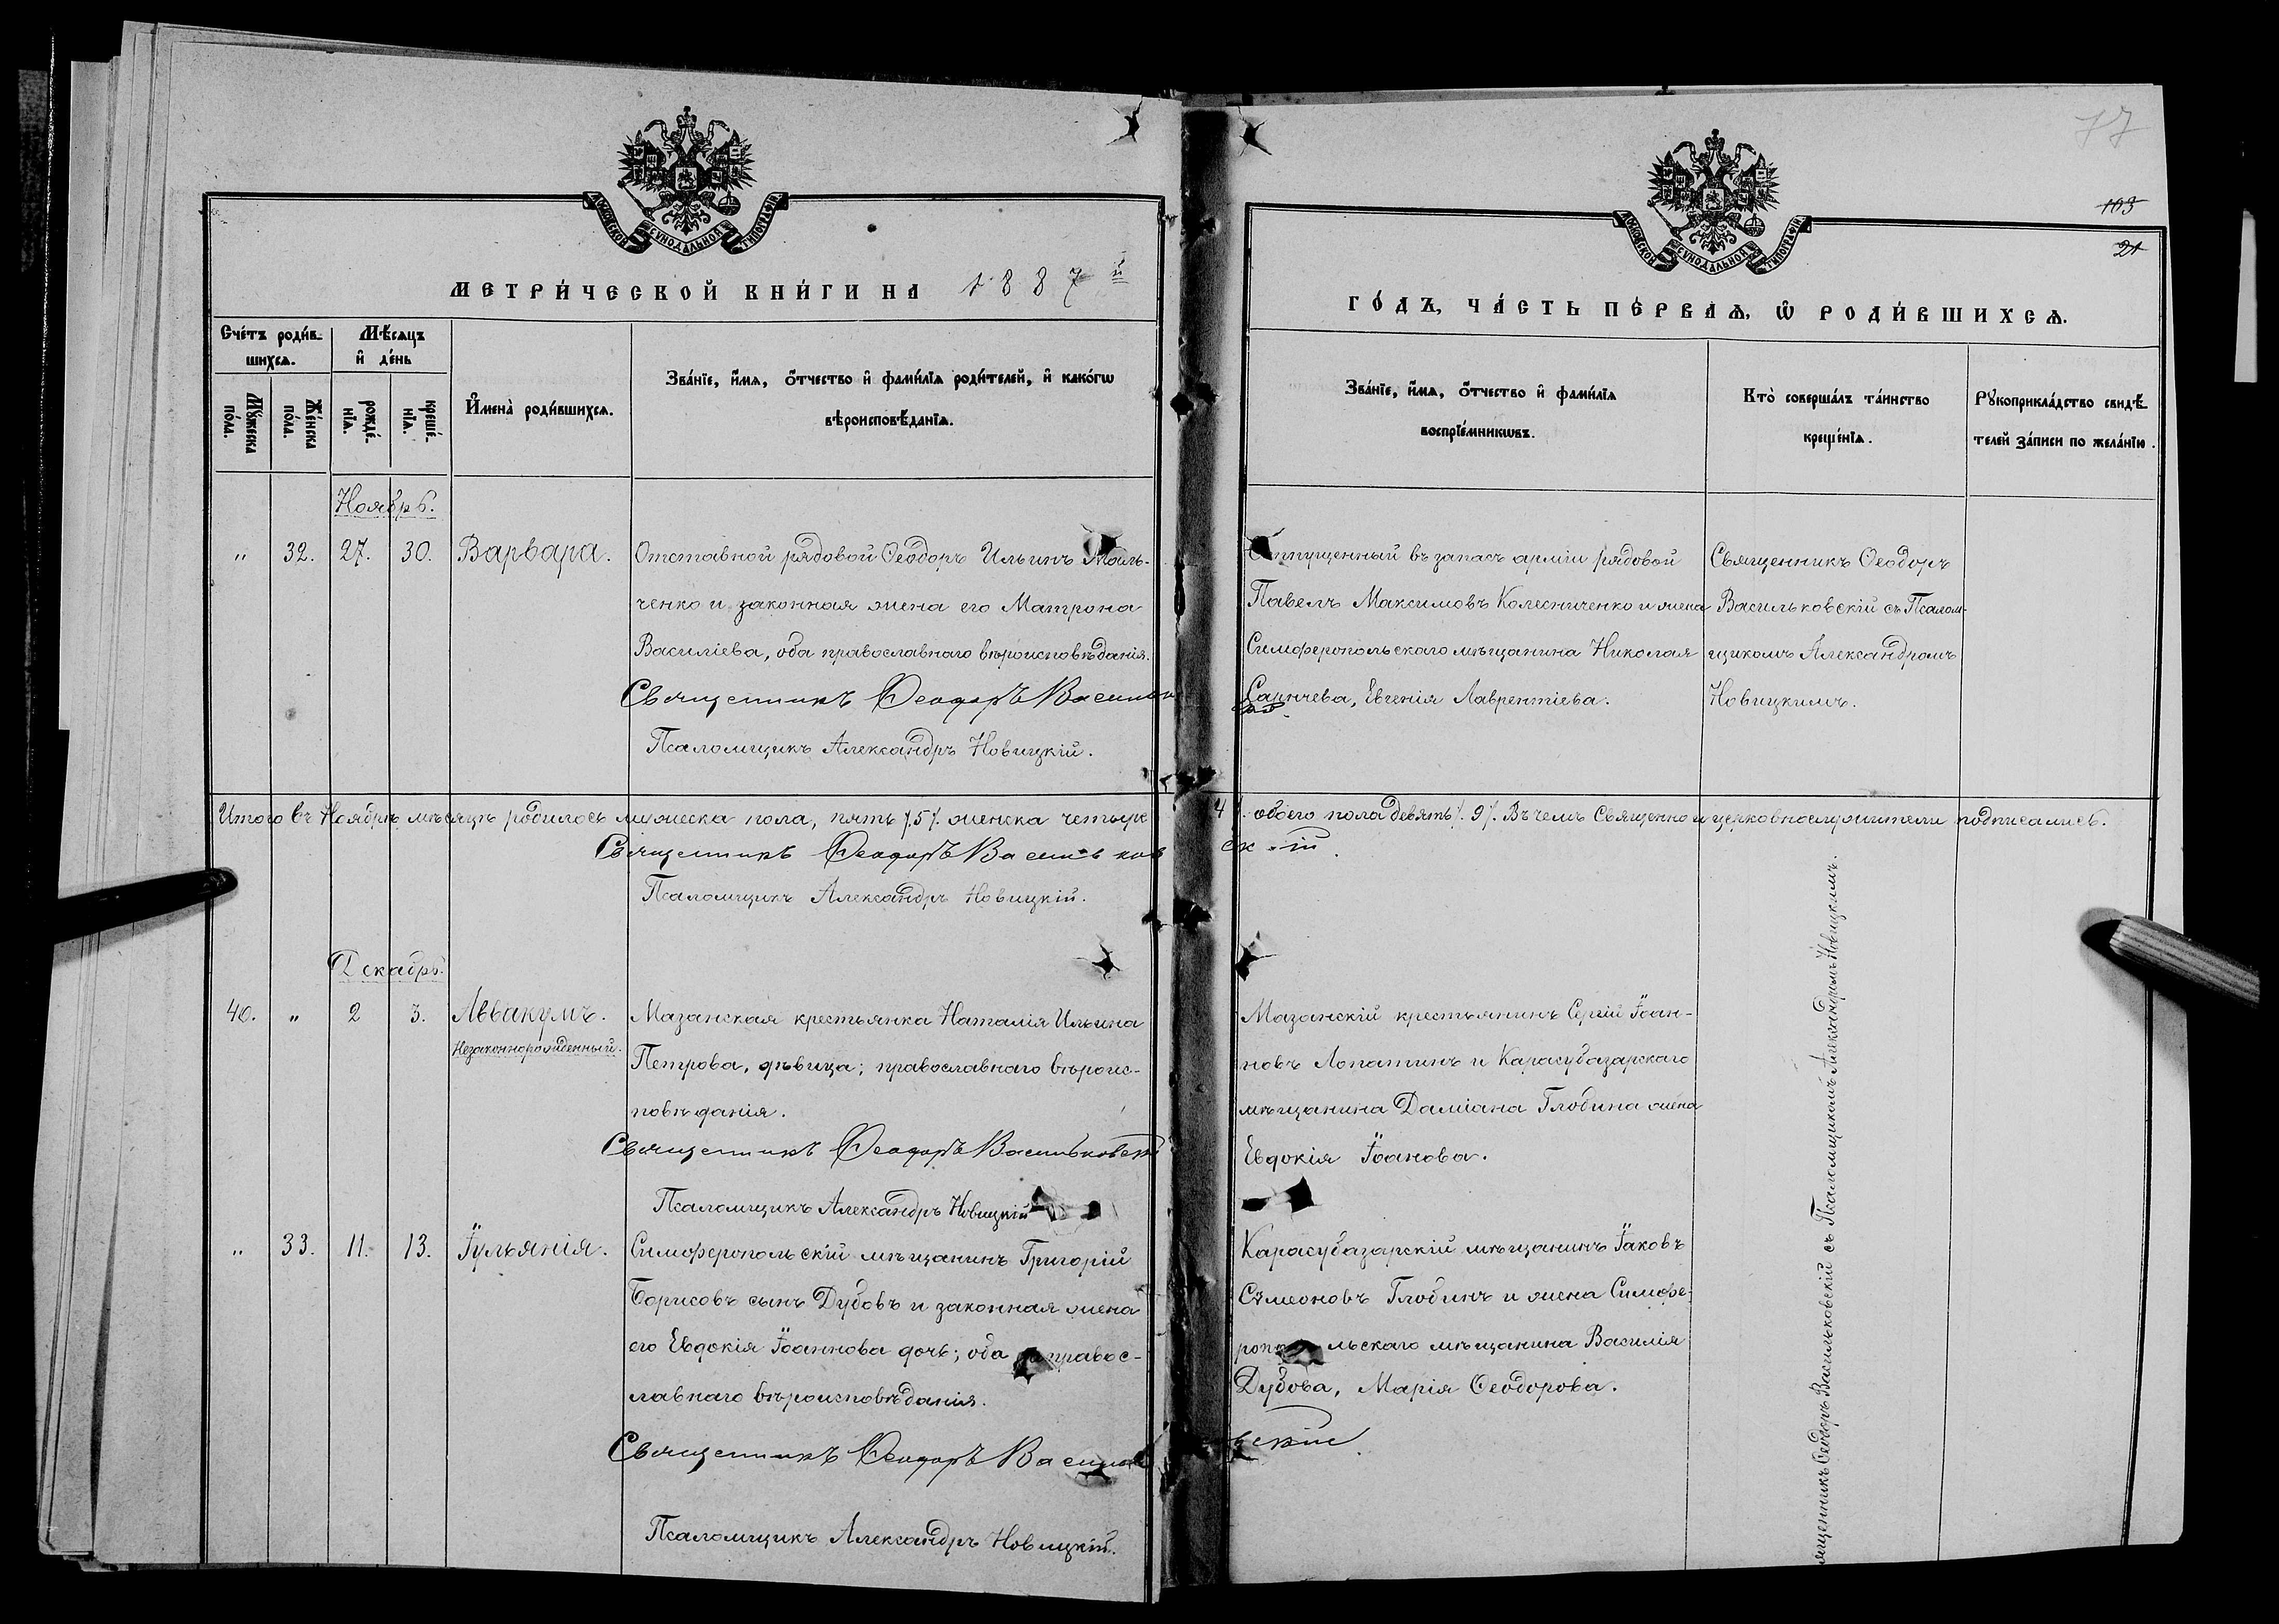 77
103
21
МОСКОВСКОЙ СѴНОДАЛЬНОЙ ТИПОГРАФІИ
МОСКОВСКОЙ СѴНОДАЛЬНОЙ ТИПОГРАФІИ
МЕТРИ́ЧЕСКОЙ КНИ́ГИ НА 1887й
ГО́ДЪ, ЧА́СТЬ ПЕ́РВАѦ, Ѡ РОДИ́ВШИХСѦ.
Сче́тъ роди́в-
шихсѧ.
Мѣ́сѧцъ
и҆ де́нь
Мꙋ́жеска
по́ла.
Же́нска
по́ла.
рожде́-
нїѧ.
креще́-
нїѧ.
И҆мена̀ роди́вшихсѧ.
Зва́нїе, и҆́мѧ, ѻ҆́тчество и҆ фами́лїѧ роди́телей, и҆ како́гѡ
вѣроисповѣ́данїѧ.
Зва́нїе, и҆́мѧ, ѻ҆́тчество и҆ фами́лїѧ
воспрїе́мникѡвъ.
Кто̀ соверша́лъ та́инство
креще́нїѧ.
Рꙋкоприкла́дство свидѣ́-
телей за́писи по жела́нїю.
Ноябрь.
" 32. 27. 30. Варвара.
Отставной рядовой Ѳеодоръ Ильинъ Моль-
ченко и законная жена его Матрона
Василіева, оба православнаго вѣроисповѣданія.
Священникъ Ѳеодоръ Васильков
Псаломщикъ Александръ Новицкій.
Отпущенный въ запасъ арміи рядовой
Павелъ Максимовъ Колесниченко и жена
Симферопольскаго мѣщанина Николая
Евгенія Лаврентіева.
Священникъ Ѳеодоръ
Васильковскій съ Псалом-
щикомъ Александромъ
Новицкимъ.
Итого въ Ноябрѣ мѣсяцѣ родилось мужеска пола, пять /.5/. женска четыре 4/. обоего пола девять/. 9/. Въ чемъ Священно и церковнослужители подписались.
Священникъ Ѳеодоръ Васильковскій.
Псаломщикъ Александръ Новицкій.
Декабрь.
40. " 2 3. Аввакумъ.
Незаконнорожденный.
Мазанская крестьянка Наталія Ильина
Петрова, дѣвица; православнаго вѣроис-
повѣданія.
Священникъ Ѳеодоръ Васильковскій
Псаломщикъ Александръ Новицкій
Мазанскій крестьянинъ Сергій Іоан-
новъ Лопатинъ и Карасубазарскаго
мѣщанина Даміана Глобина жена
Евдокія Іоанова.
" 33. 11. 13. Іуліанія.
Симферопольскій мѣщанинъ Григорій
Борисовъ сынъ Дубовъ и законная жена
его Евдокія Іоаннова дочь; оба правос-
лавнаго вѣроисповѣданія.
Священникъ Ѳеодоръ Васильковскій
Псаломщикъ Александръ Новицкій.
Карасубазарскій мѣщанинъ Іаковъ
Сѵмеоновъ Глобинъ и жена Симфе-
ропольскаго мѣщанина Василія
Дубова, Марія Ѳеодорова.
ященникъ Ѳеодоръ Васильковскій съ Псаломщикомъ Александромъ Новицкимъ.